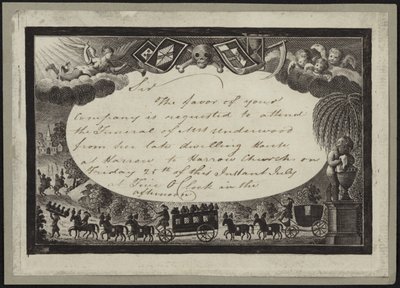 Sir
The favor of your
Company is requested to attend
the Funeral of Mrs Underwood
from her late dwelling House
at Harrow to Harrow Church on
Friday 21st of this Instant July
at Five O Clock in the
afternoon